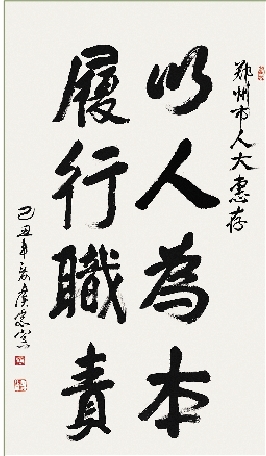 鄭州市人大惠存
以人為本
履行職責
己丑年